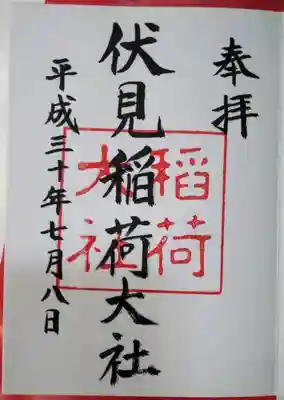 奉拝
伏見稲荷大社
稲荷
大社
平成三十年七月八日